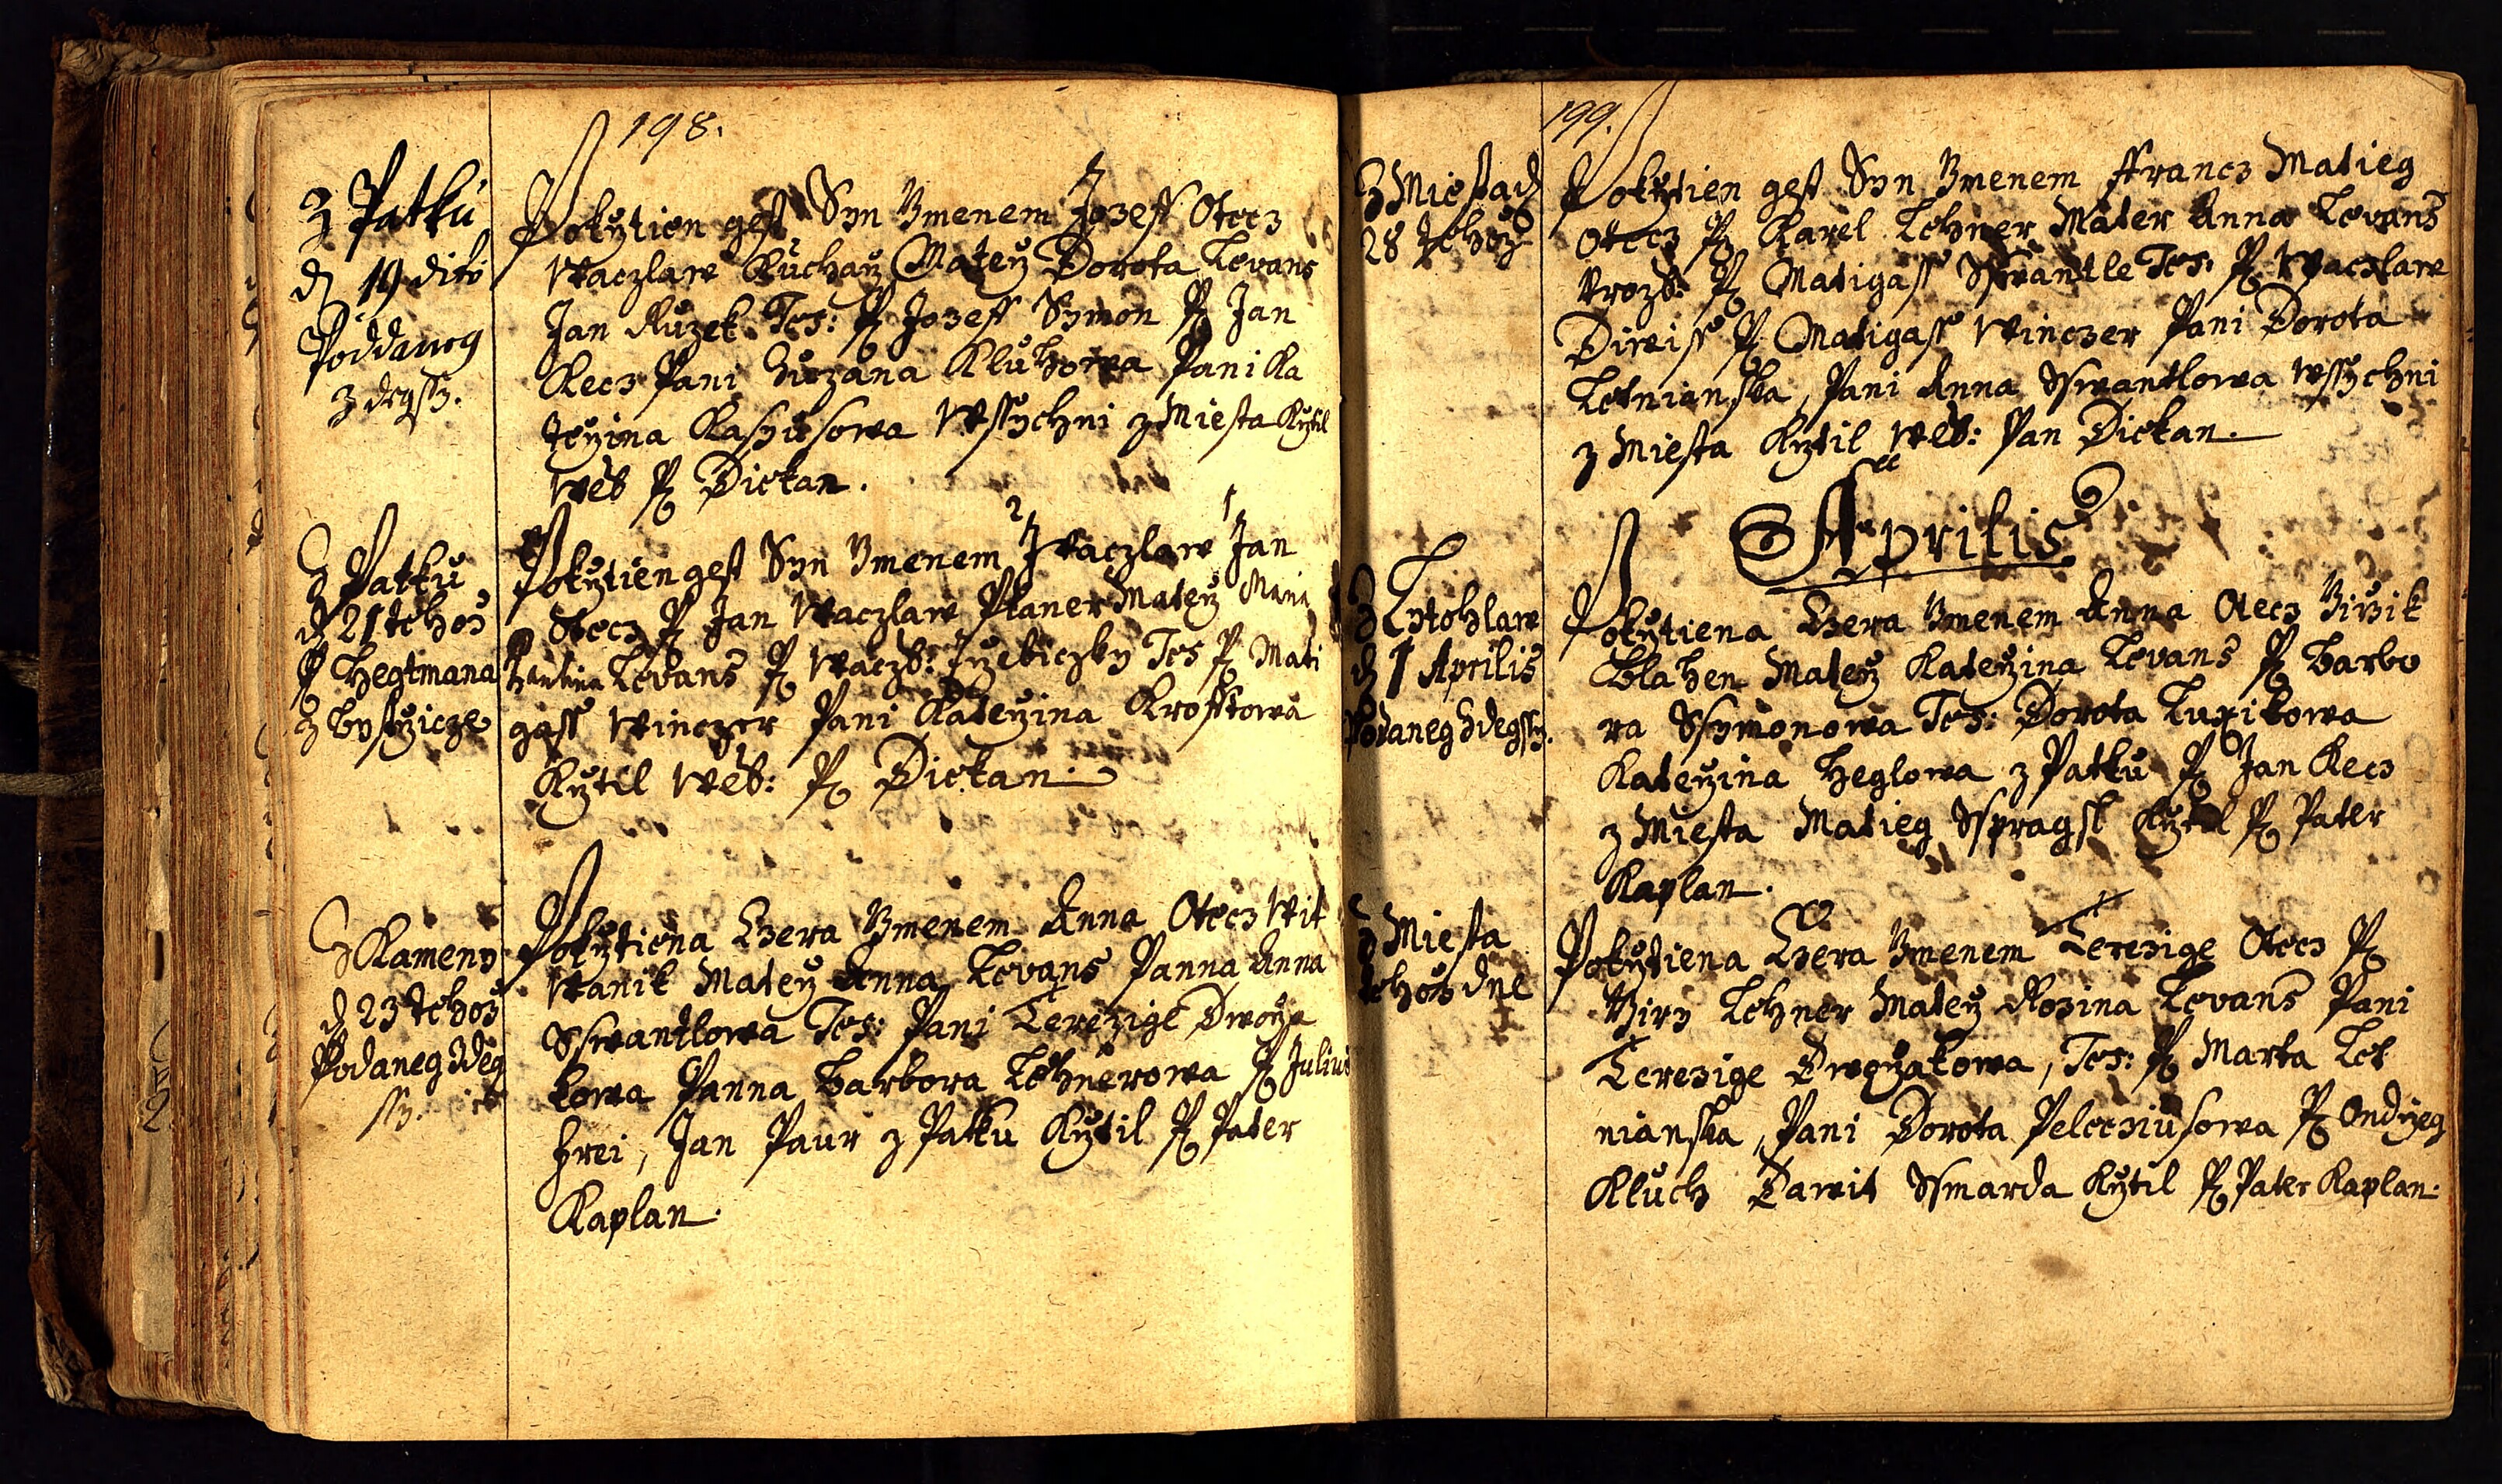 198.
Z Patku
d 19 dito
Poddaneg
zdegssy.
Pokrztien gest Syn Gmenem Jozeff Otecz
Waczlaw Kucharz Materz Dorota Levans
Jan Ruzek Tes: P Jozeff Symon P Jan
Kecz Pani Zuzana Kluhowa Pani Ka
terzina Kaszusowa Wssychni z Miesta Krztil
Web P Diekan.
Z Patku
d 21 tehoz
P Hegtmana
z Bystrzicze
Pokrztien gest Syn Gmenem 2 Waczlaw 1 Jan
Otecz P Jan Waczlaw Planer Materz Mariana
Levans P Waczl: Tes P Mati
gass Winczer Pani Katerzina Krofftowa
Krztil Web: P Diekan.
Z Kameny
d 23 tehoz
Podaneg zdeg
ssy.
Pokrztiena Czera Gmenem Anna Otecz Wit
Wanik Materz Anna Levans Panna Anna
Sswantlowa Tes: Pani Terezige Dworza
kowa Panna Barbora Lehnerowa P Julius
Frei, Jan Paur z Patku Krztil P Pater
Kaplan.
199.
Z Miesta d
28 tehoz
Pokrztien gest Syn Gmenem Ffrancz Matieg
Otecz P Karel Lehner Mater Anna Levans
Urozd: P Matigass Sswantle Tes: P Waczlaw
Diwiss P Matigass Winczer Pani Dorota
Letnianska, Pani Anna Sswantlowa Wssychni
z Miesta Krztil Web: Pan Diekan.
Aprilis
d 1 Aprilis
Podaneg zdegssy.
Pokrztiena Czera Gmenem Anna Otecz Girzik
Blahen Materz Katerzina Levans P Barbo
ra Ssymonowa Tes: Dorota
Katerzina Heglowa z Patku P Jan Kecz
z Miesta Matieg Sspragsl Krztil P Pater
Kaplan.
Z Miesta
tehoz dne
Pokrztiena Czera Gmenem Terezige Otecz P
Girzy Lehner Materz Rozina Levans Pani
Terezige Dworzakowa, Tes: P Marta Let
nianska, Pani Dorota Pelecziusowa P Ondrzeg
Kluch Dawit Ssmarda Krztil P Pater Kaplan.